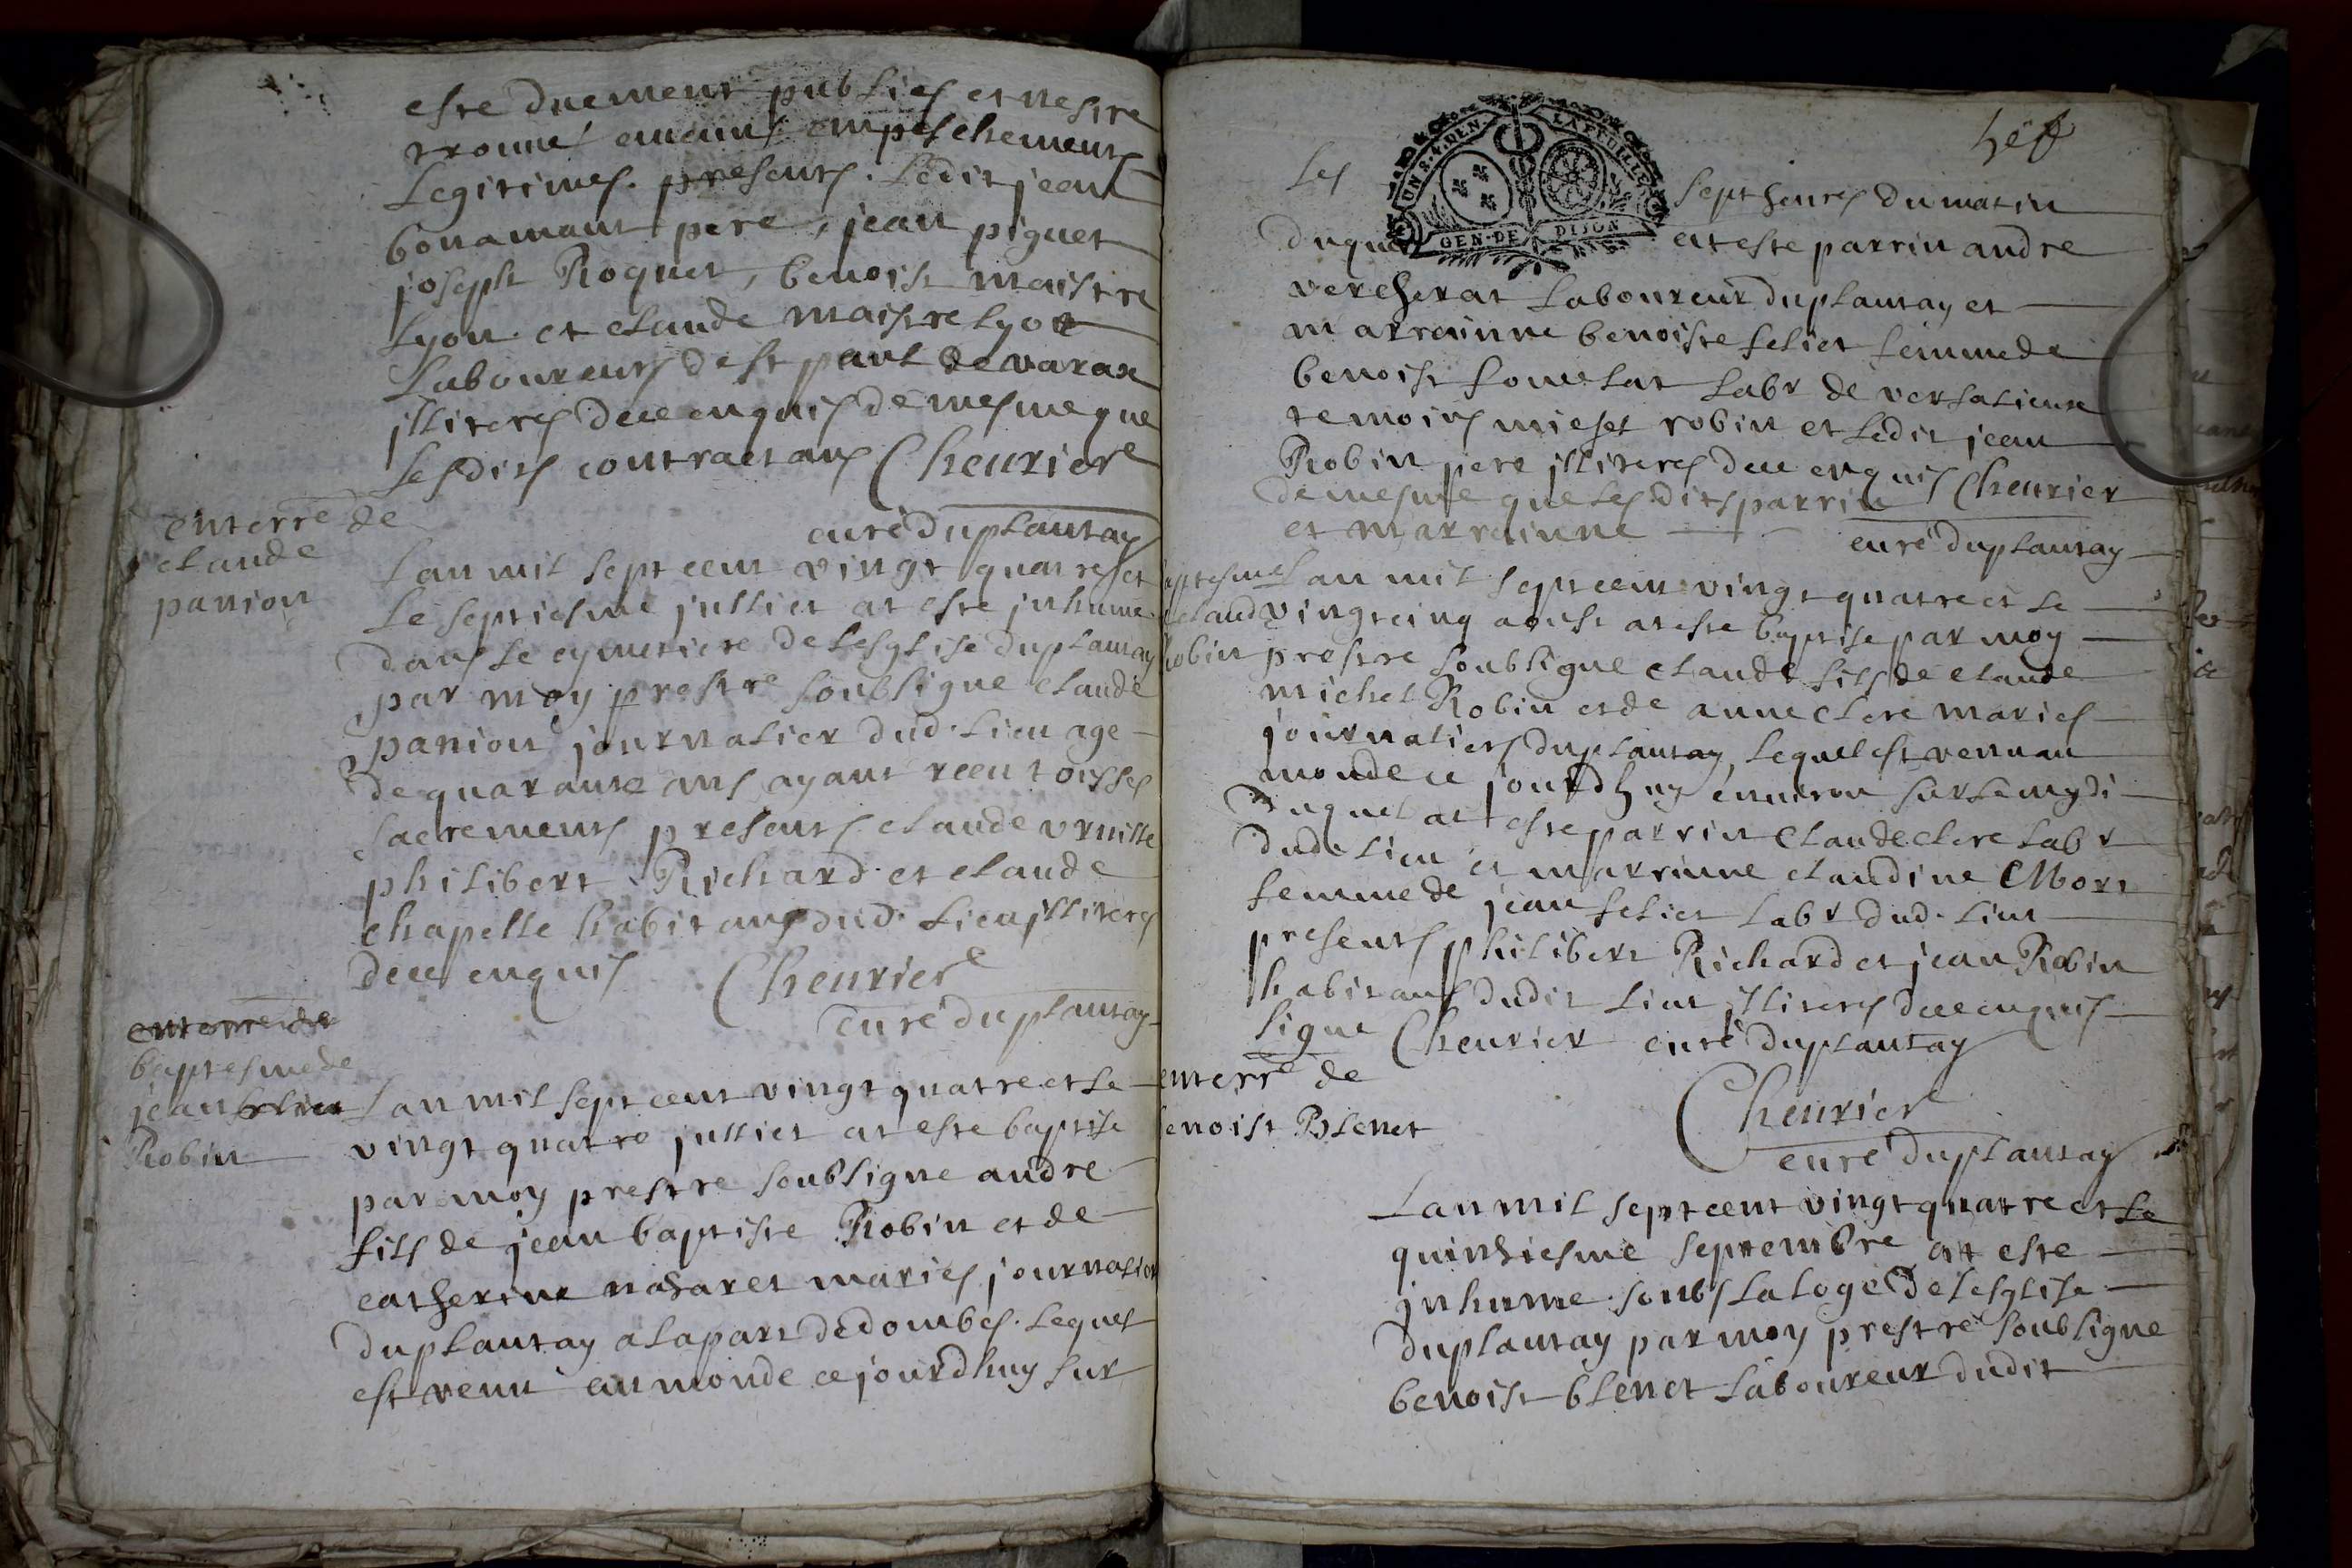 estre duement publies et nestre
trouné aucuns empeschements
Legitimes. presents. Ledit jean
bonamant pere, jean piguet
joseph Roquet, benoist maistre
Lyon. et claude maistre lyon
Laboureurs de st paul de varax
jlliteres dece enquis de mesme que
Lesdits contractans Cheurier
curé duplantay
enterre de
claude
panion
Lan mil sept cent vingt quatre et
Le septiesme juillet at este jnhume
dans Le cymetiere de Lesglise duplantay
par moy prestre soubsigne claude
panion journalier dud. Lieu age
de quarante ans ayant receu tous ses
sacrements presents. claude
philibert Richard et claude
chapelle habitans dud. Lieu jlliteres
dece enquis Cheurier
curé duplantay
enterre de
baptesme de
jean
Robin
Lan mil sept cent vingt quatre et Le
vingt quatre juillet at este baptise
par moy prestre soubsigne andre
fils de jean baptiste Robin et de
catherine nasaret maries journaliers
duplantay a la part de dombes. Lequel
est venu au monde ce jourdhuy sur
Les sept heures du matin
duquel at este parrin andre
vercherat Laboureur duplantay et
marrainne benoiste feliet femme de
benoist Labr de versalieux
temoins michel robin et Ledit jean
Robin pere jlliteres dece enquis Cheurier
de mesme que Les dits parrin
et marrainne
curé duplantay
aptesme
claud
obin
Lan mil sept cent vingt quatre et Le
vingt cinq aoust at este baptise par moy
prestre soubsigne claude fils de claude
michel Robin et de anne clere maries
journaliers duplantay, Lequel est venu au
monde ce jourdhuy enuiron sur Le mydi
Duquel at este parrin Claude clere Labr
dud. Lieu et marrinne claudine Mort
femme de jean feliet Labr dud. Lieu
presents philibert Richard et jean Robin
habitans dudit Lieu jlliteres dece enquis
signe Cheurier curé duplantay
Cheurier
curé duplantay
enterre de
enoist Blenet
Lan mil sept cent vingt quatre et Le
quinsiesme septembre at este
jnhume soubs la loge de Lesglise
duplantay par moy prestre soubsigne
benoist blenet Laboureur dudit
UN S. 4. DEN. LA FEUILLE
GEN. DE DIJON